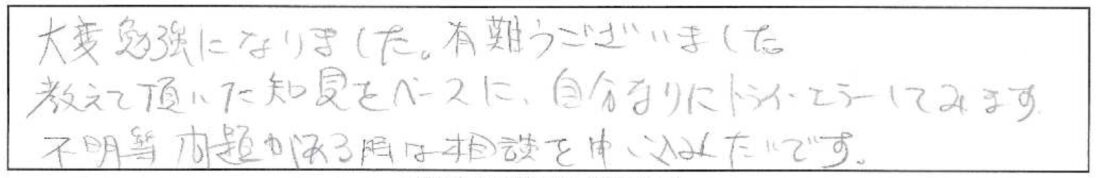 大変勉強になりました。有難うございました。
教えて頂いた知見をベースに、自分なりにトライ・エラーしてみます。
不明等問題がある時は相談を申し込みたいです。